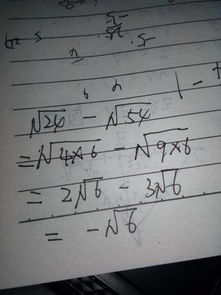 √24 - √54
=√4×6 - √9×6
= 2√6 - 3√6
= -√6